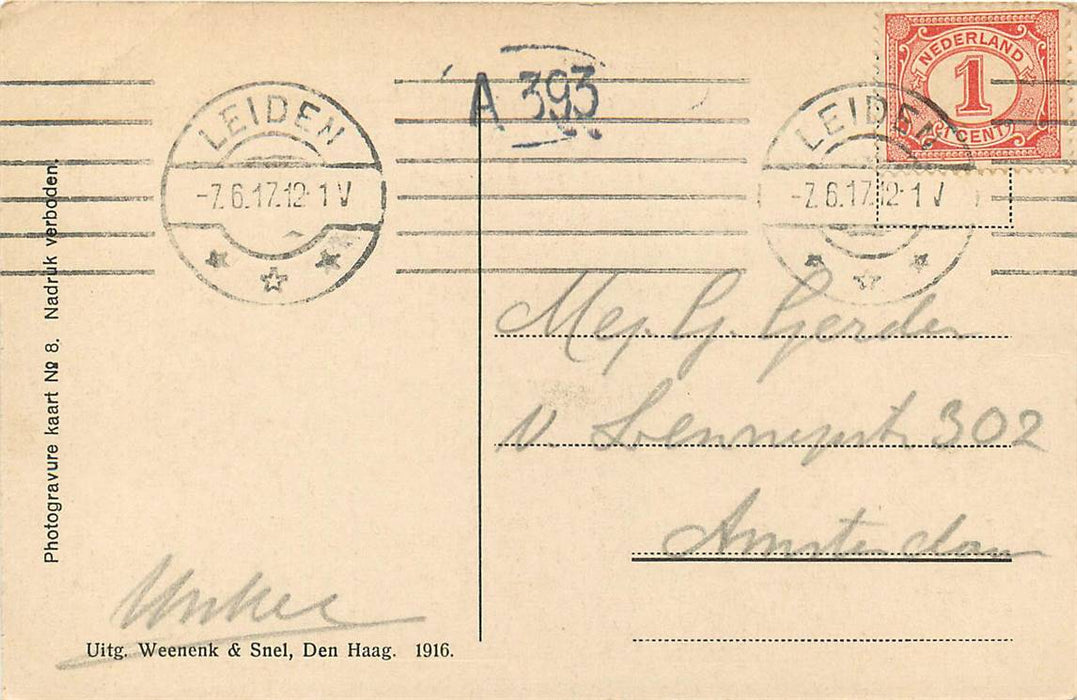 NEDERLAND
1
1 CENT
LEIDEN
-7.6.17.12-1 V
LEIDEN
-7.6.17.12-1 V
A 393
Photogravure kaart No 8. Nadruk verboden.
Mej. G. Gerder
v. Lennepstr 302
Amsterdam
Uitg. Weenenk & Snel, Den Haag. 1916.